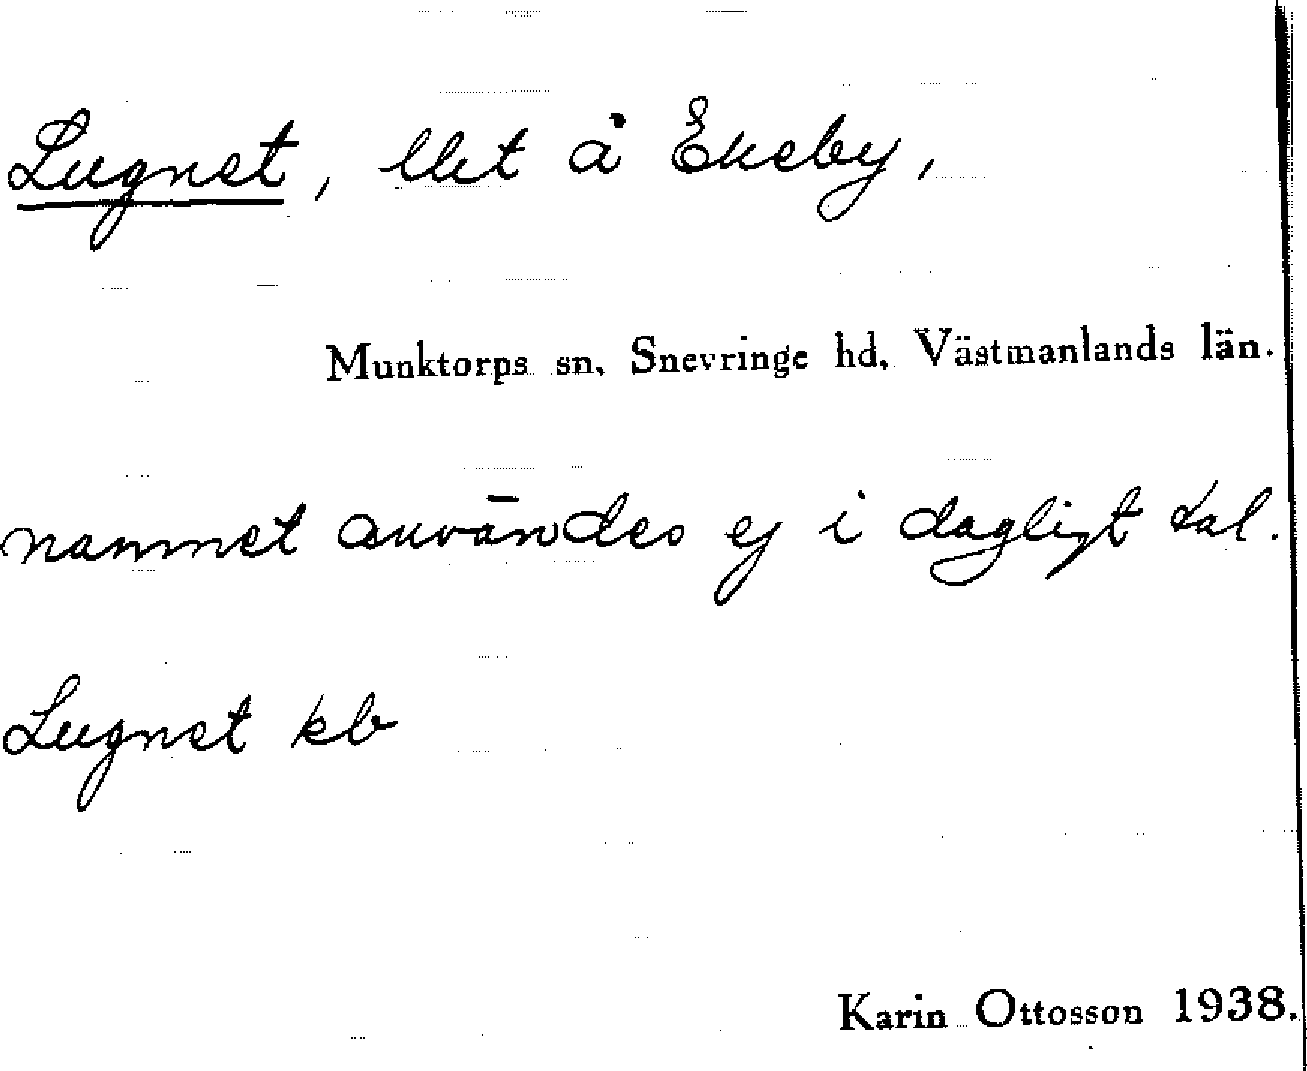 Lugnet, llet å Ekeby,
Munktorps sn, Snevringe hd, Västmanlands län.
namnet användes ej i dagligt tal.
Lugnet kb
Karin Ottosson 1938.